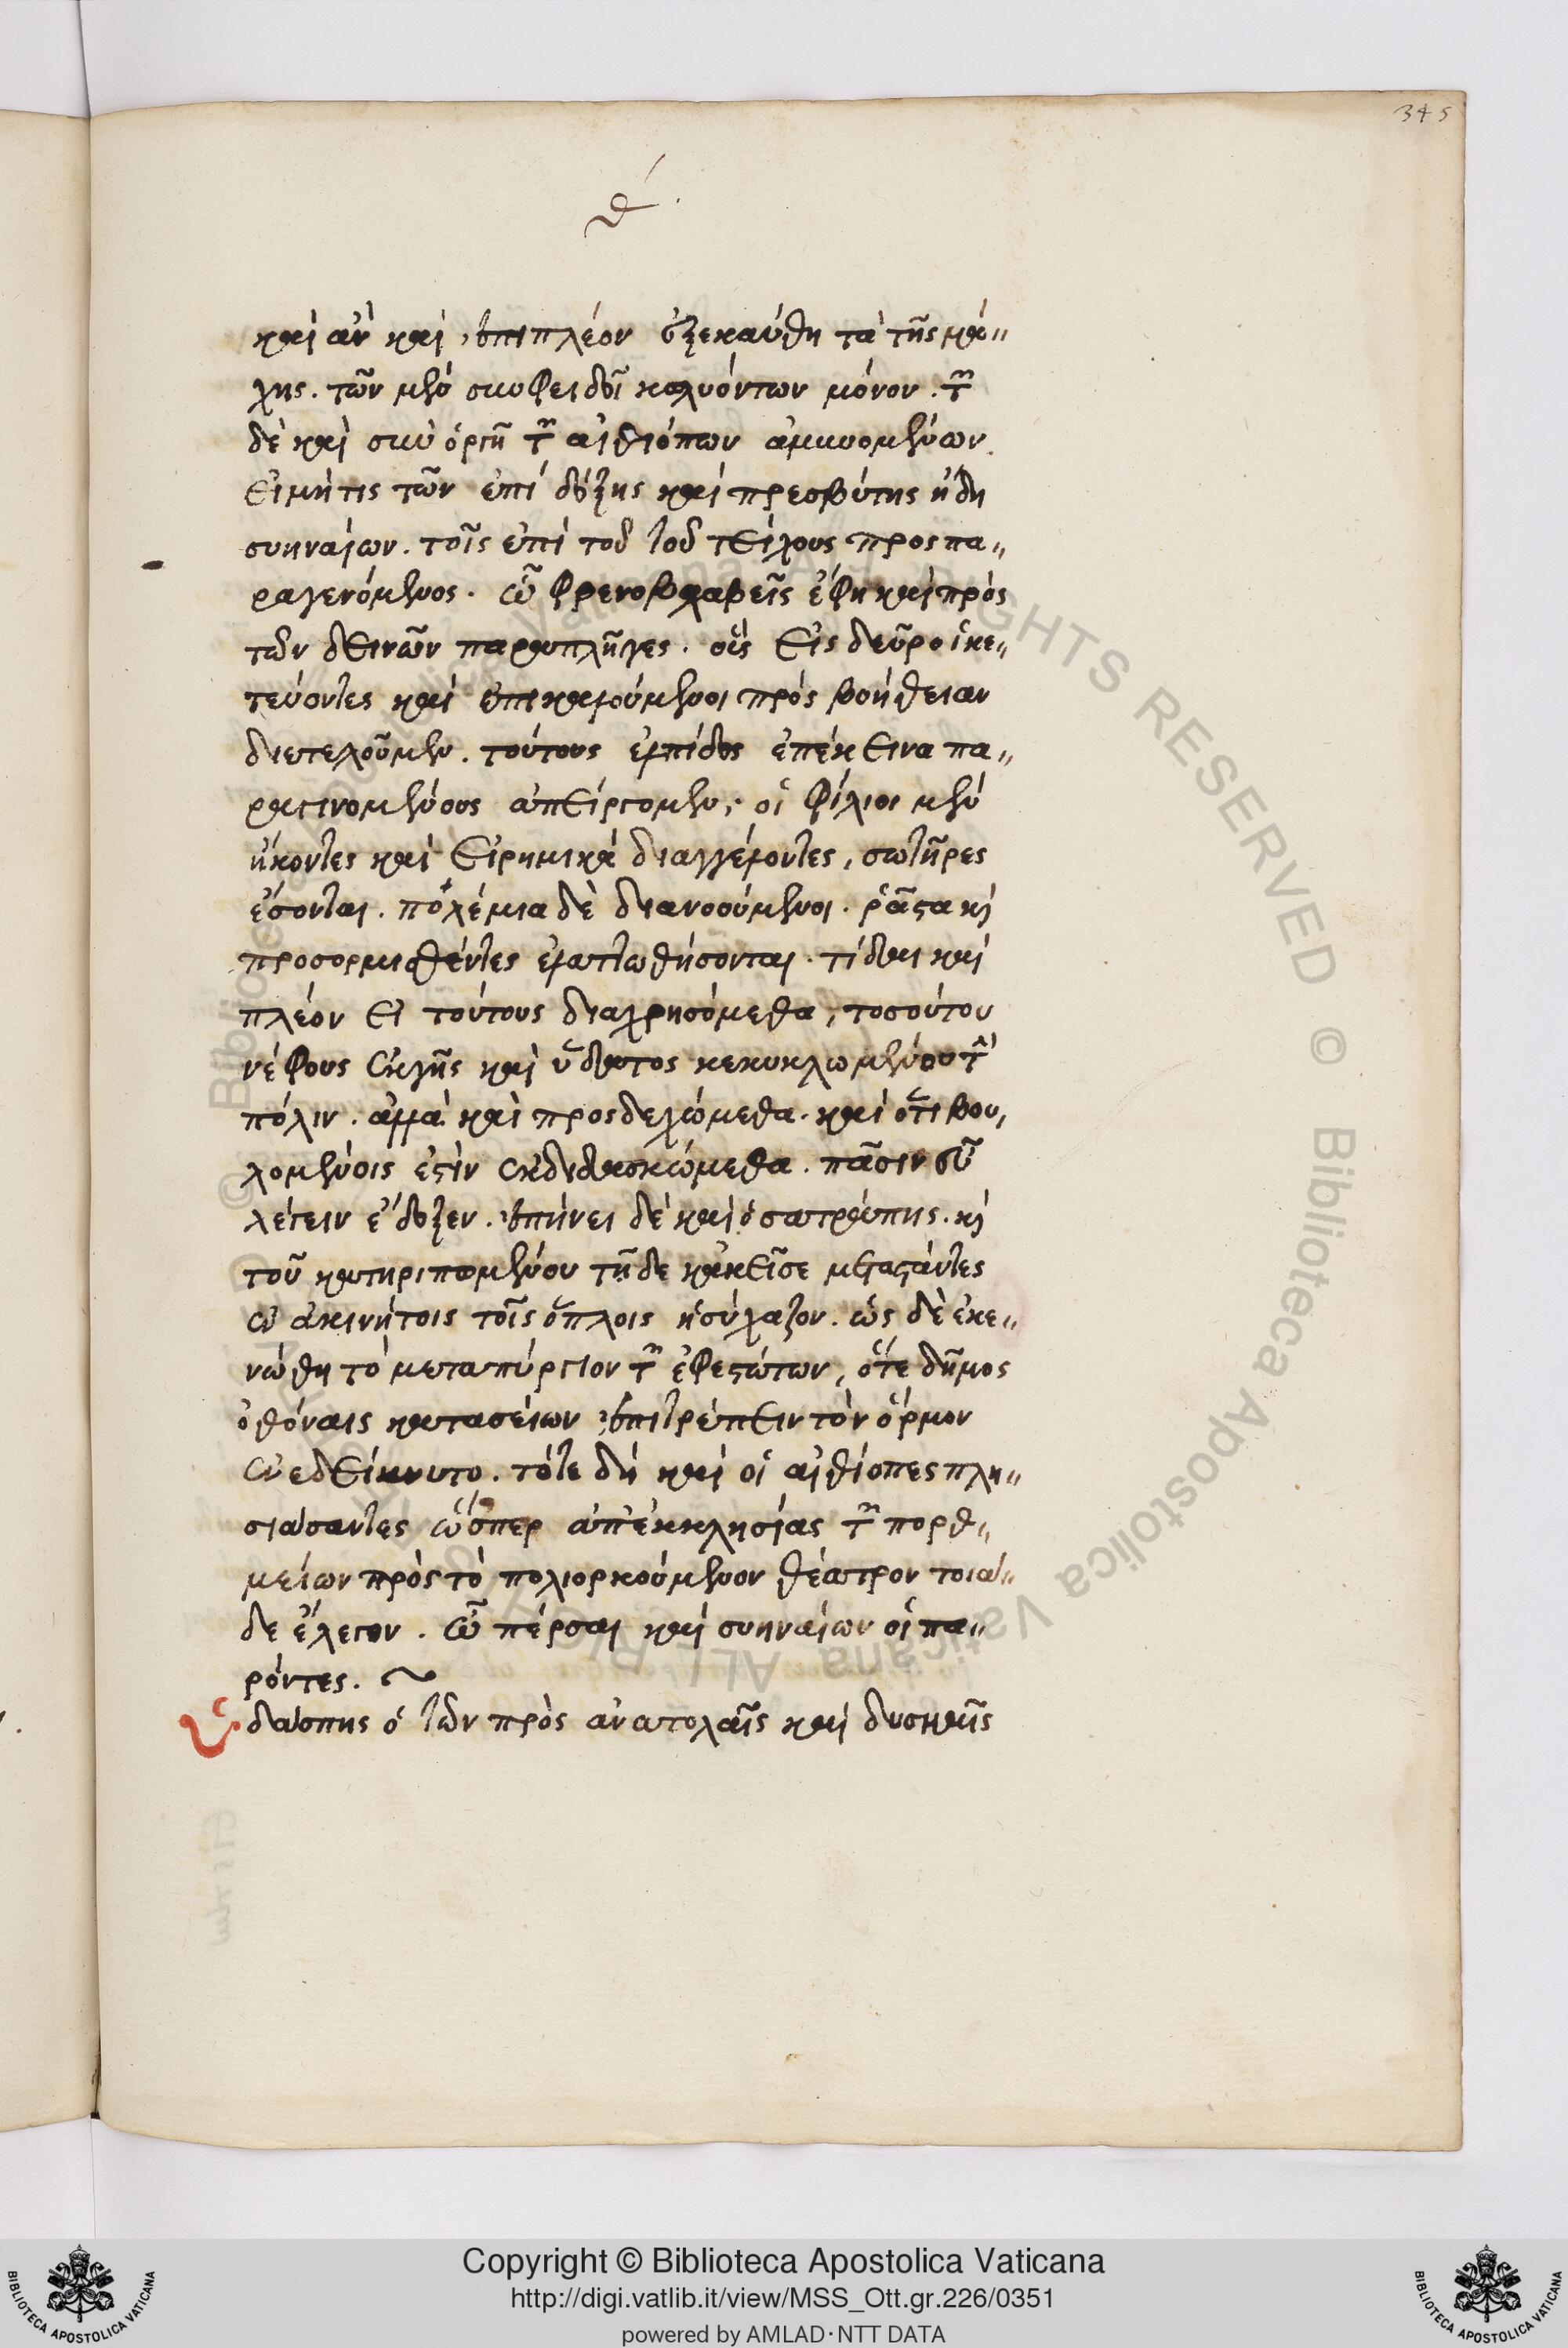 345
θ´.
καὶ ἀν καὶ ἐπιπλέον ἐξεκαύθη τὰ τῆς μά„
χης. τῶν μὲν σὺν φειδοῖ κωλυόντων μόνον. τῶν
δὲ καὶ σὺν ὀργῇ τῶν αἰθιόπων ἀμυνομένων.
εἰμήτις τῶν ἐπὶ δόξης καὶ πρεσβύτης ἤδη
συηναίων. τοῖς ἐπὶ τοῦ τοῦ τείχους προς πα„
ραγενόμενος. ὦ φρενοβλαβεῖς ἔφη καὶ πρὸς
τῶν δεινῶν παραπλῆγες. οὓς εἰς δεῦρο ἱκε„
τεύοντες καὶ ἐπικαλούμενοι πρὸς βοήθειαν
διετελοῦμεν. τούτους ἐλπίδος ἐπέκεινα πα„
ραγινομένους ἀπείργομεν; οἱ φίλιοι μὲν
ἥκοντες καὶ εἰρηνικὰ διαγγέλοντες, σωτῆρες
ἔσονται. πολέμια δὲ διανοούμενοι. ῥᾶστα κὶ
προσορμισθέντες ἐλαττωθήσονται. τί δαι καὶ
πλέον εἰ τούτους διαχρησόμεθα, τοσούτου
νέφους ἐκγῆς καὶ ὕδατος κεκυκλωμένου τὴν
πόλιν. ἀλλὰ καὶ προσδεχώμεθα. καὶ ὅτι βου„
λομένοις ἐστὶν ἐκδιδασκώμεθα. πᾶσιν εὖ
λέγειν ἔδοξεν. ἐπήνει δὲ καὶ ὁ σατράπης. κὶ
τοῦ κατηριπωμένου τῇδε κἀκεῖσε μεταστάντες
ἐν ἀκινήτοις τοῖς ὅπλοις ἡσύχαζον. ὡς δὲ ἐκε„
νώθη τὸ μεταπύργιον τῶν ἐφεστώτων, ὅτε δῆμος
ὀθόναις κατασείων ἐπιτρέπειν τὸν ὅρμον
ἐνεδείκνυτο. τότε δὴ καὶ οἱ αἰθίοπες πλη„
σιάσαντες ὥσπερ ἀπ' ἐκκλησίας τῶν πορθ„
μείων πρὸς τὸ πολιορκούμενον θέατρον τοιά„
δε ἔλεγον. ὦ πέρσαι καὶ συηναίων οἱ πα„
ρόντες.
ὑδάσπης ὁ τῶν πρὸς ἀνατολαῖς καὶ δυσμαῖς
© Biblioteca Apostolica Vaticana ALL RIGHTS RESERVED
Copyright © Biblioteca Apostolica Vaticana
http://digi.vatlib.it/view/MSS_Ott.gr.226/0351
powered by AMLAD·NTT DATA
BIBLIOTECA APOSTOLICA VATICANA
BIBLIOTECA APOSTOLICA VATICANA